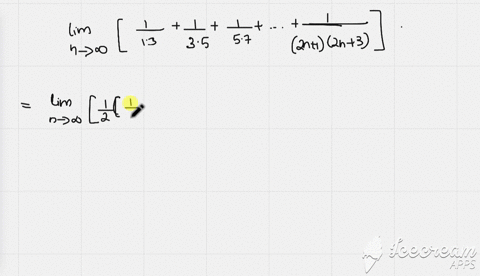 lim n→∞ [ 1/1·3 + 1/3·5 + 1/5·7 + ... + 1/(2n+1)(2n+3) ] .
= lim n→∞ [ 1/2 ( 1/
Icecream
APPS